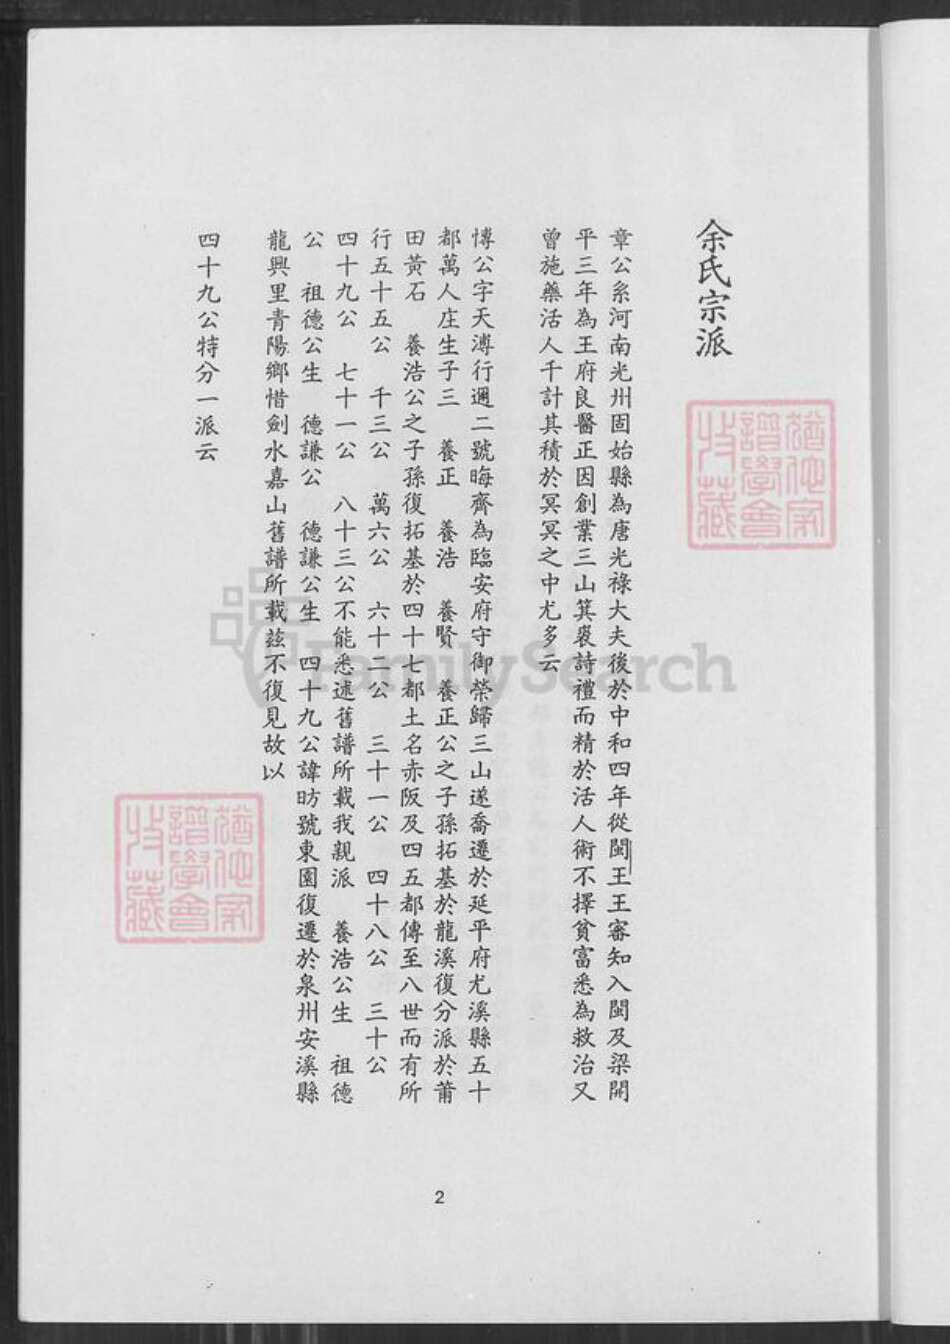 余氏宗派
章公系河南光州固始縣為唐光祿大夫後於中和四年從閩王王審知入閩及梁開
平三年為王府良醫正因創業三山箕裘詩禮而精於活人術不擇貧富悉為救治又
曾施藥活人千計其積於冥冥之中尤多云
愽公字天溥行邇二號晦齊為臨安府守御榮歸三山遂喬遷於延平府尤溪縣五十
都萬人庄生子三 養正 養浩 養賢 養正公之子孫拓基於龍溪復分派於莆
田黃石 養浩公之子孫復拓基於四十七都土名赤阪及四五都傳至八世而有所
行五十五公 千三公 萬六公 六十二公 三十一公 四十八公 三十公
四十九公 七十一公 八十三公不能悉述舊譜所載我親派 養浩公生 祖德
公 祖德公生 德謙公 德謙公生 四十九公諱昉號東園復遷於泉州安溪縣
龍興里青陽鄉惜劍水嘉山舊譜所載茲不復見故以
四十九公特分一派云
譜學會
收藏
譜學會
收藏
FamilySearch
2